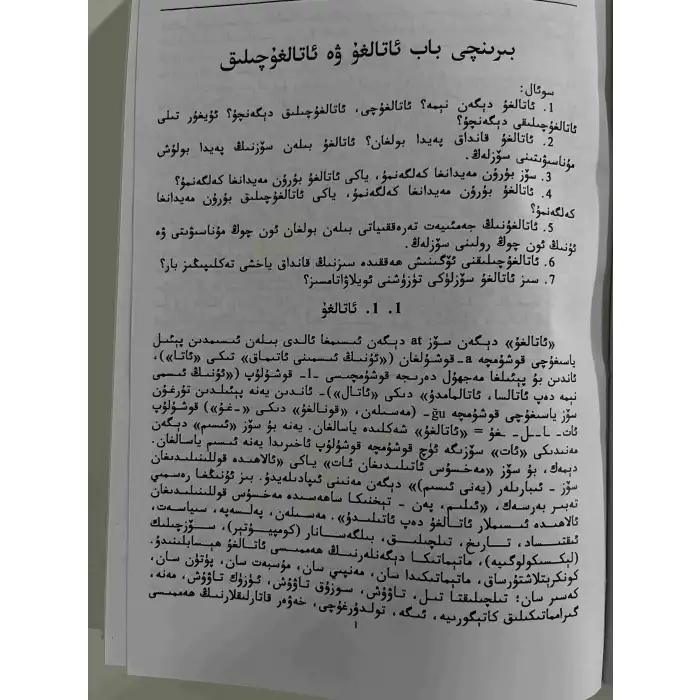 بىرىنچى باب ئاتالغۇ ۋە ئاتالغۇچىلىق
سوئال:
1. ئاتالغۇ دېگەن نېمە؟ ئاتالغۇچى، ئاتالغۇچىلىق دېگەنچۇ؟ ئۇيغۇر تىلى
ئاتالغۇچىلىقى دېگەنچۇ؟
2. ئاتالغۇ قانداق پەيدا بولغان؟ ئاتالغۇ بىلەن سۆزنىڭ پەيدا بولۇش
مۇناسىۋىتىنى سۆزلەڭ.
3. سۆز بۇرۇن مەيدانغا كەلگەنمۇ، ياكى ئاتالغۇ بۇرۇن مەيدانغا كەلگەنمۇ؟
4. ئاتالغۇ بۇرۇن مەيدانغا كەلگەنمۇ، ياكى ئاتالغۇچىلىق بۇرۇن مەيدانغا
كەلگەنمۇ؟
5. ئاتالغۇنىڭ جەمئىيەت تەرەققىياتى بىلەن بولغان ئون چوڭ مۇناسىۋىتى ۋە
ئۇنىڭ ئون چوڭ رولىنى سۆزلەڭ.
6. ئاتالغۇچىلىقنى ئۆگىنىش ھەققىدە سىزنىڭ قانداق ياخشى تەكلىپىڭىز بار؟
7. سىز ئاتالغۇ سۆزلۈكى تۈزۈشنى ئويلاۋاتامسىز؟
1. 1. ئاتالغۇ
«ئاتالغۇ» دېگەن سۆز at دېگەن ئىسىمغا ئالدى بىلەن ئىسىمدىن پېئىل
ياسىغۇچى قوشۇمچە a- قوشۇلغان («ئۇنىڭ ئىسمىنى ئاتىماق» تىكى «ئاتا»)،
ئاندىن بۇ پېئىلغا مەجھۇل دەرىجە قوشۇمچىسى -l- قوشۇلۇپ («ئۇنىڭ ئىسمى
نېمە دەپ ئاتالسا، ئاتالمامدۇ» دىكى «ئاتال»)- ئاندىن يەنە پېئىلدىن تۇرغۇن
سۆز ياسىغۇچى قوشۇمچە ğu- (مەسىلەن، «قونالغۇ» دىكى «-غۇ») قوشۇلۇپ
ئات- ـا ـ ل ـ غۇ = «ئاتالغۇ» شەكلىدە ياسالغان. يەنە بۇ سۆز «ئىسىم» دېگەن
مەنىدىكى «ئات» سۆزىگە ئۈچ قوشۇمچە قوشۇلۇپ ئاخىرىدا يەنە ئىسىم ياسالغان.
دېمەك، بۇ سۆز «مەخسۇس ئاتىلىدىغان ئات» ياكى «ئالاھىدە قوللىنىلىدىغان
سۆز - ئىبارىلەر (يەنى ئىسىم)» دېگەن مەنىنى ئىپادىلەيدۇ. بىز ئۇنىڭغا رەسمىي
تەبىر بەرسەك، «ئىلىم، پەن - تېخنىكا ساھەسىدە مەخسۇس قوللىنىلىدىغان
ئالاھىدە ئىسىملار ئاتالغۇ دەپ ئاتىلىدۇ». مەسىلەن، پەلسەپە، سىياسەت،
ئىقتىساد، تارىخ، تىلچىلىق، بىلگەسانار (كومپيۇتېر)، سۆزچىلىك
(لېكسىكولوگىيە)، ماتېماتىكا دېگەنلەرنىڭ ھەممىسى ئاتالغۇ ھېسابلىنىدۇ.
كونكرېتلاشتۇرساق، ماتېماتىكىدا سان، مەنپىي سان، مۇسبەت سان، پۈتۈن سان،
كەسىر سان؛ تىلچىلىقتا تىل، تاۋۇش، سوزۇق تاۋۇش، ئۈزۈك تاۋۇش، مەنە،
گرامماتىكىلىق كاتېگورىيە، ئىگە، تولدۇرغۇچى، خەۋەر قاتارلىقلارنىڭ ھەممىسى
1